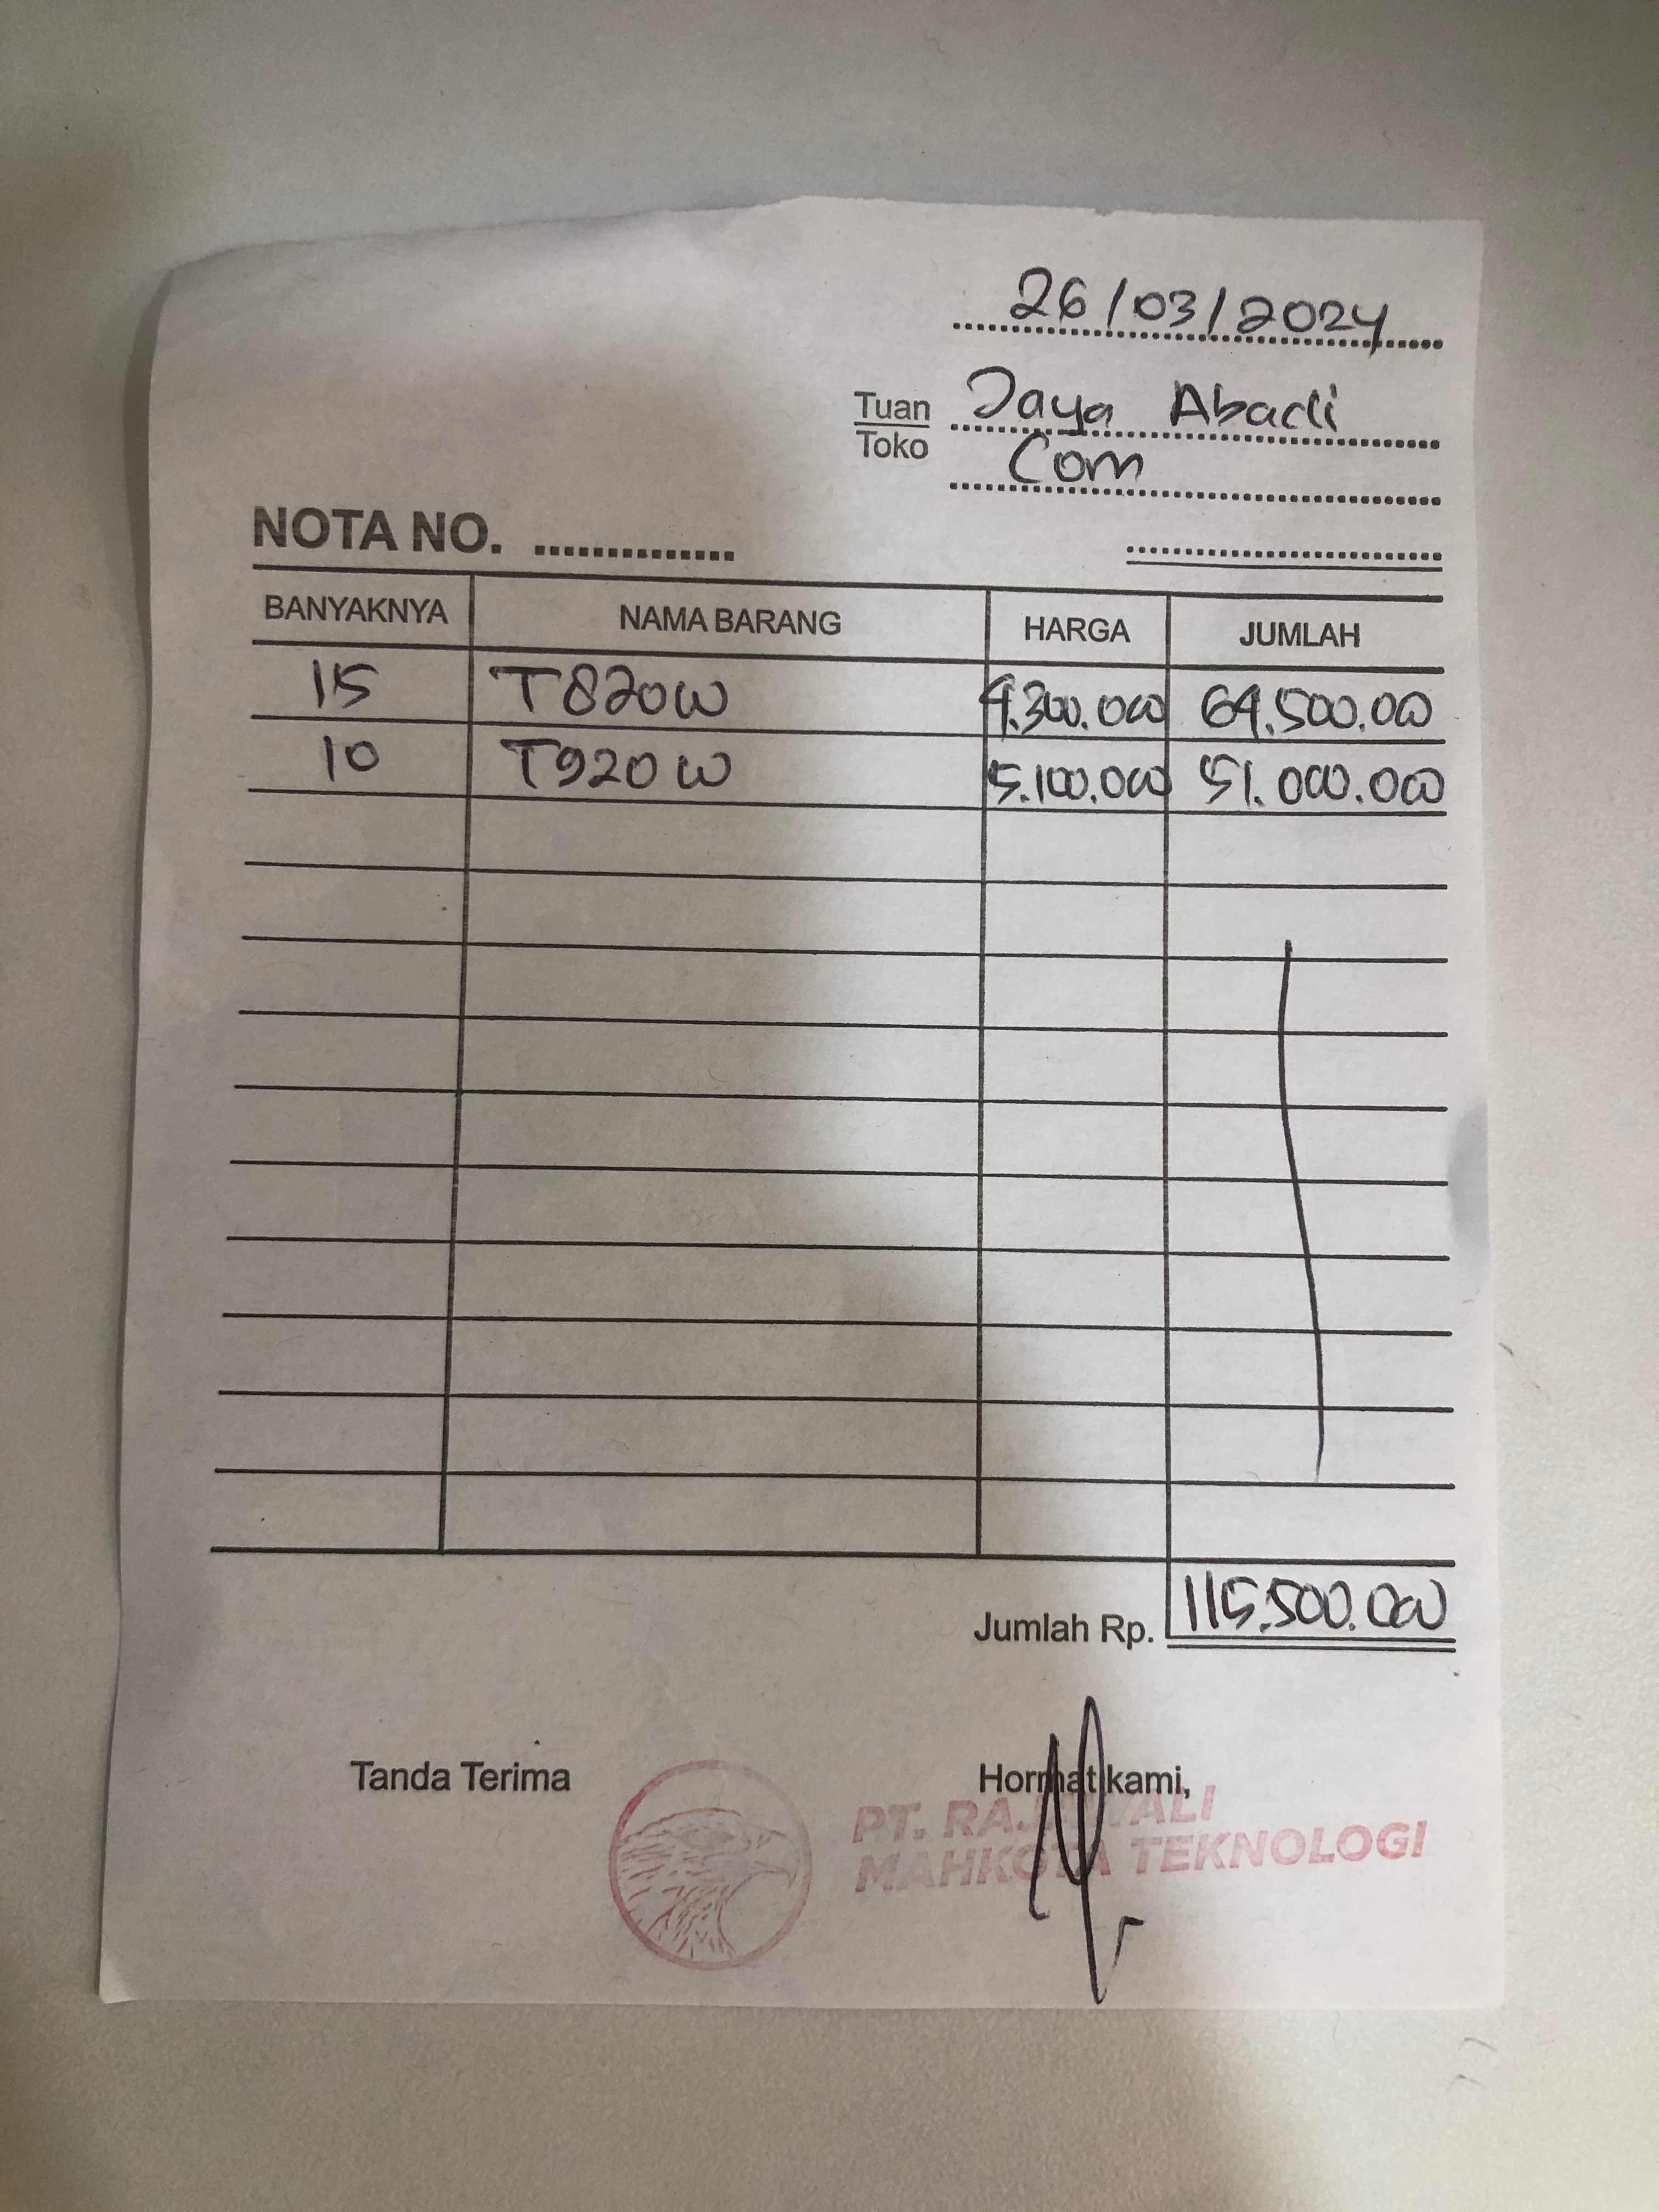 26/03/2024
Tuan Jaya Abadi
Toko Com
NOTA NO. ...............
BANYAKNYA NAMA BARANG HARGA JUMLAH
15 T820W 4.300.000 64.500.000
10 T920W 5.100.000 51.000.000
Jumlah Rp. 115.500.000
Tanda Terima Hormat kami,
PT. RAJAWALI
MAHKOTA TEKNOLOGI